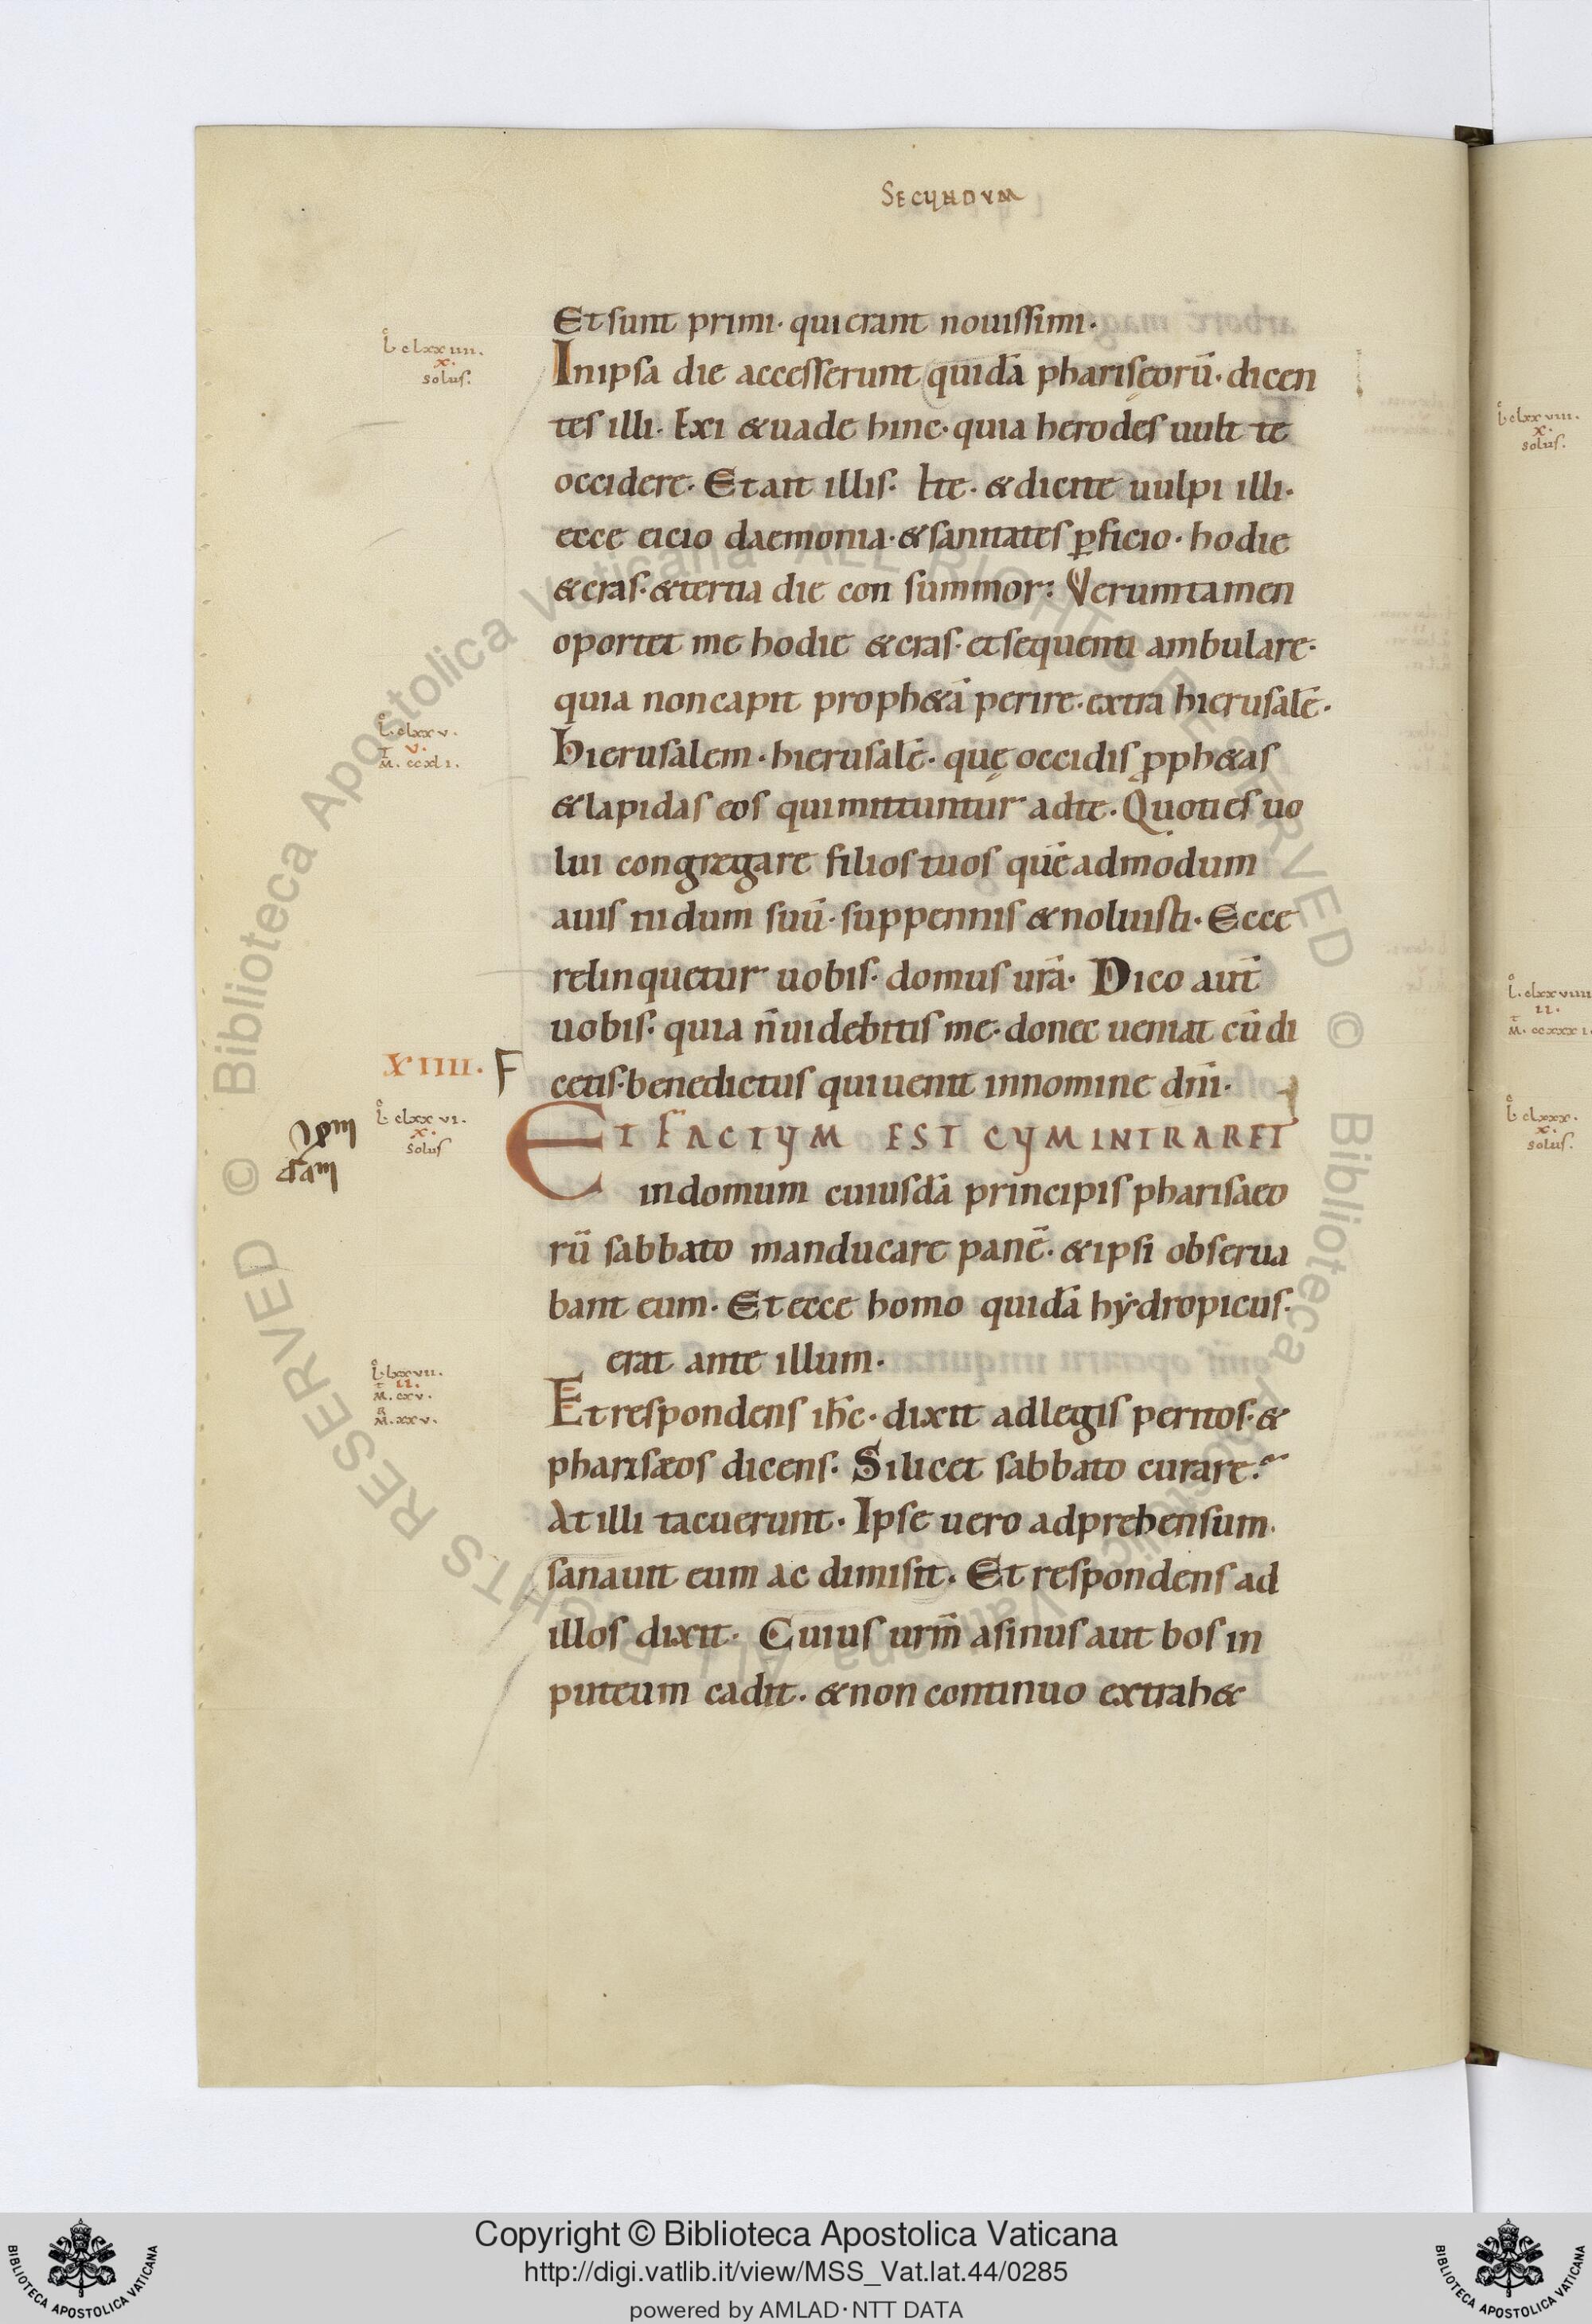 SECUNDUM
Et sunt primi· qui erant nouissimi·
In ipsa die accesserunt quidā phariseęorū· dicen
tes illi· Exi &uade hinc· quia herodes uult te
occidere· Et ait illis· Ite· &dicite uulpi illi·
ecce eicio daemonia· &sanitates ꝑficio· hodie
&cras· &tertia die con summor: Verumtamen
oportet me hodie &cras· et sequenti ambulare·
quia non capit proph&ā perire· extra hierusalē·
Hierusalem· hierusalē· quę occidis ꝓph&as
&lapidas eos qui mittuntur ad te· Quoties uo
lui congregare filios tuos quēadmodum
auis nidum suū· sup pennis &noluisti· Ecce
relinquetur uobis· domus urā· Dico aut̄
uobis· quia n̄ uidebitis me· donec ueniat cū di
cetis· benedictus qui uenit in nomine dn̄i·
ET FACTUM EST CUM INTRARET
in domum cuiusdā principis pharisaeo
rū sabbato manducare panē· &ipsi obserua
bant eum· Et ecce homo quidā hẏdropicus·
erat ante illum·
Et respondens ih̄c· dixit ad legis peritos· &
pharisæos dicens· Si licet sabbato curare?
At illi tacuerunt· Ipse uero adprehensum·
sanauit eum ac dimisit· Et respondens ad
illos dixit· Cuius urm̄ asinus aut bos in
puteum cadit· &non continuo extrah&
L̊ clxxiiii.
x.
solus.
L̊ clxxv.
v.
M. ccxli.
XIIII. F
L̊ clxxvi.
x.
solus
L̊ lxxvii.
ii.
M. cxv.
M. xxv.
L̊ clxxviii.
x.
solus.
L̊. clxxviiii
ii.
M. ccxxxi
L̊ clxxx.
x.
solus.
© Biblioteca Apostolica Vaticana ALL RIGHTS RESERVED © Biblioteca Apostolica Vaticana ALL RIGHTS RESERVED
Copyright © Biblioteca Apostolica Vaticana
http://digi.vatlib.it/view/MSS_Vat.lat.44/0285
powered by AMLAD·NTT DATA
BIBLIOTECA APOSTOLICA VATICANA
BIBLIOTECA APOSTOLICA VATICANA